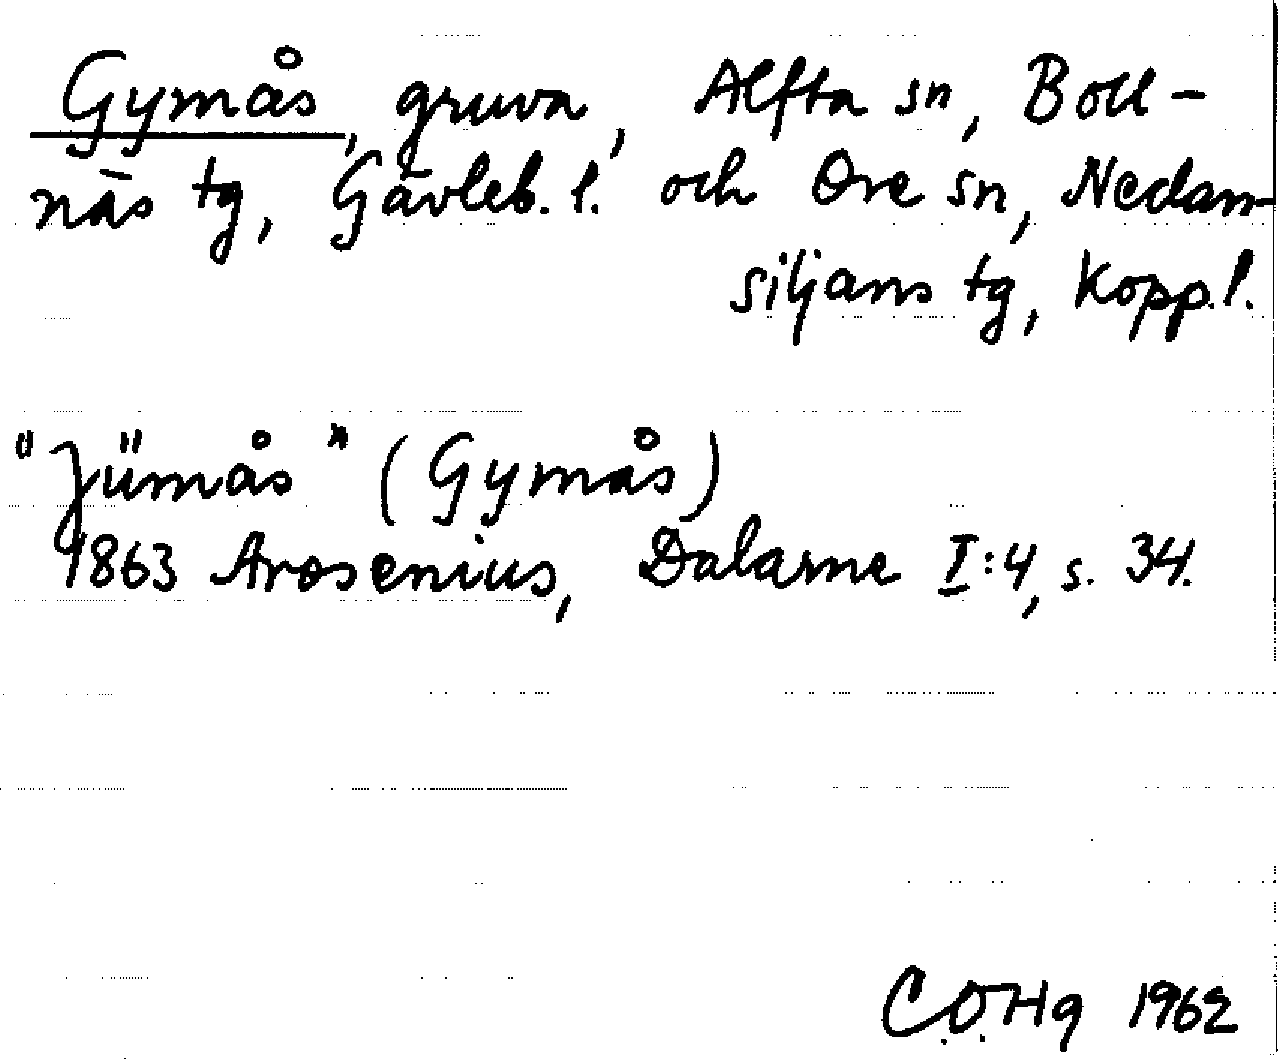 Gymås, gruva, Alfta sn, Boll-
näs tg, Gävleb. l. och Ore sn, Nedan-
siljans tg, Kopp. l.
"Jümås" (Gymås)
1863 Arosenius, Dalarne I:4, s. 34.
C.O.Hg 1962